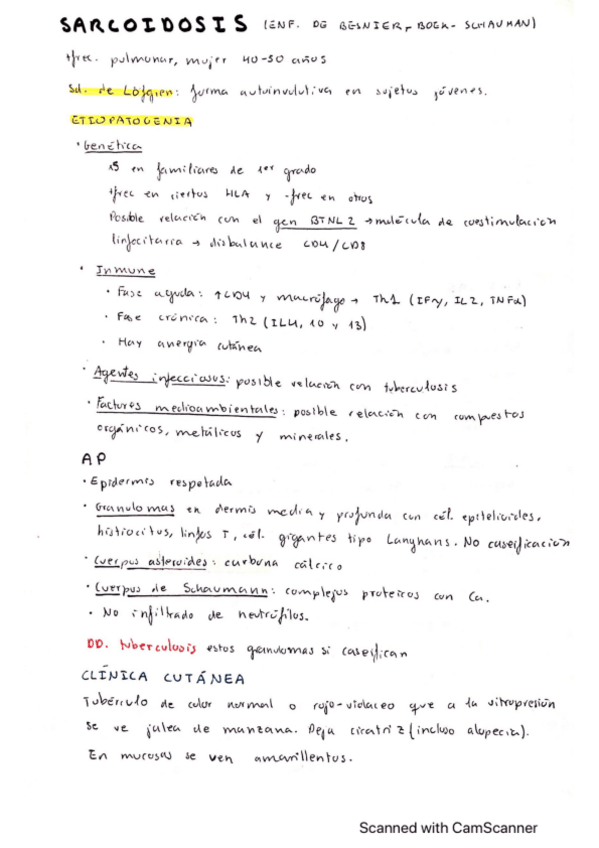 SARCOIDOSIS (ENF. DE BESNIER, BOEK- SCHAUMAN)
+frec. pulmonar, mujer 40-50 años
Sd. de Löfgren: forma autoinvolutiva en sujetos jóvenes.
ETIOPATOGENIA
• Genética
x5 en familiares de 1er grado
+frec en ciertos HLA y -frec en otros
Posible relación con el gen BTNL2 → molécula de coestimulación
linfocitaria → disbalance CD4/CD8
• Inmune
• Fase aguda: ↑CD4 y macrófago → Th1 (IFγ, IL2, TNFα)
• Fase crónica: Th2 (IL4, 10 y 13)
• Hay anergia cutánea
• Agentes infecciosos: posible relación con tuberculosis
• Factores medioambientales: posible relación con compuestos
orgánicos, metálicos y minerales.
AP
• Epidermis respetada
• Granulomas en dermis media y profunda con cél. epitelioides,
histiocitos, linfos T, cél. gigantes tipo Langhans. No caseificación
• Cuerpos asteroides: carbona cálcico
• Cuerpos de Schaumann: complejos proteicos con Ca.
• No infiltrado de neutrófilos.
DD. tuberculosis estos granulomas si caseifican
CLÍNICA CUTÁNEA
Tubérculo de color normal o rojo-violaceo que a la vitropresión
se ve jalea de manzana. Deja cicatriz (incluso alopecia).
En mucosas se ven amarillentos.
Scanned with CamScanner